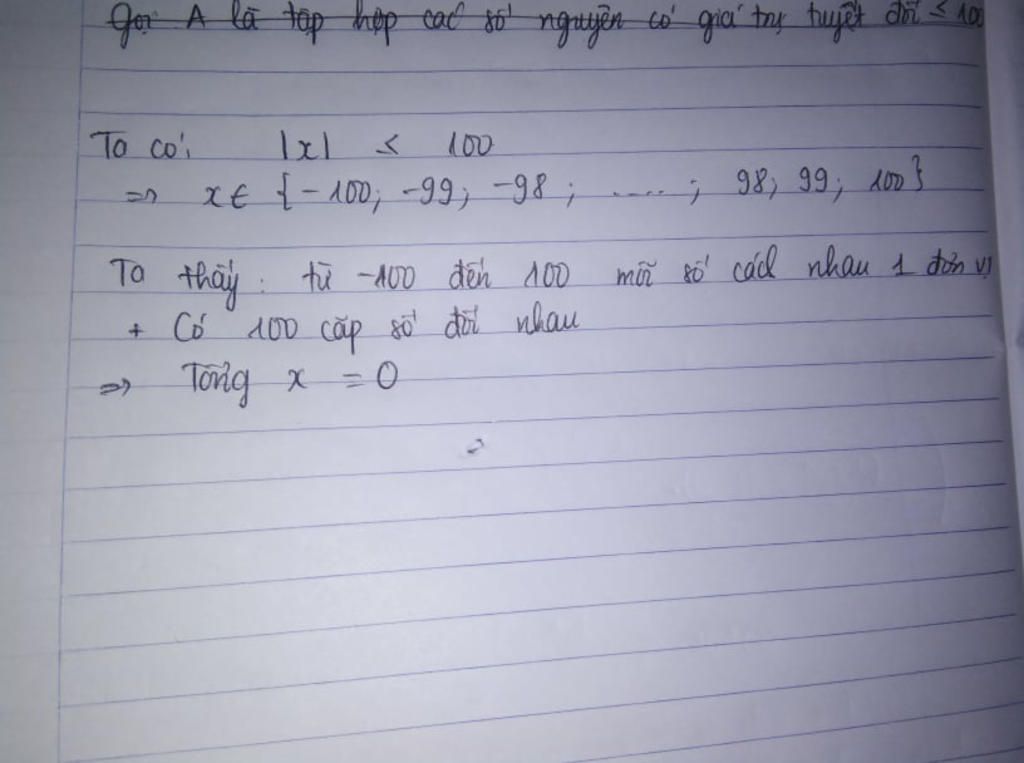 Gọi A là tập hợp các số nguyên có giá trị tuyệt đối ≤ 100
Ta có: |x| ≤ 100
=> x ∈ {-100; -99; -98; .....; 98; 99; 100}
Ta thấy: từ -100 đến 100 mỗi số cách nhau 1 đơn vị
+ Có 100 cặp số đối nhau
=> Tổng x = 0